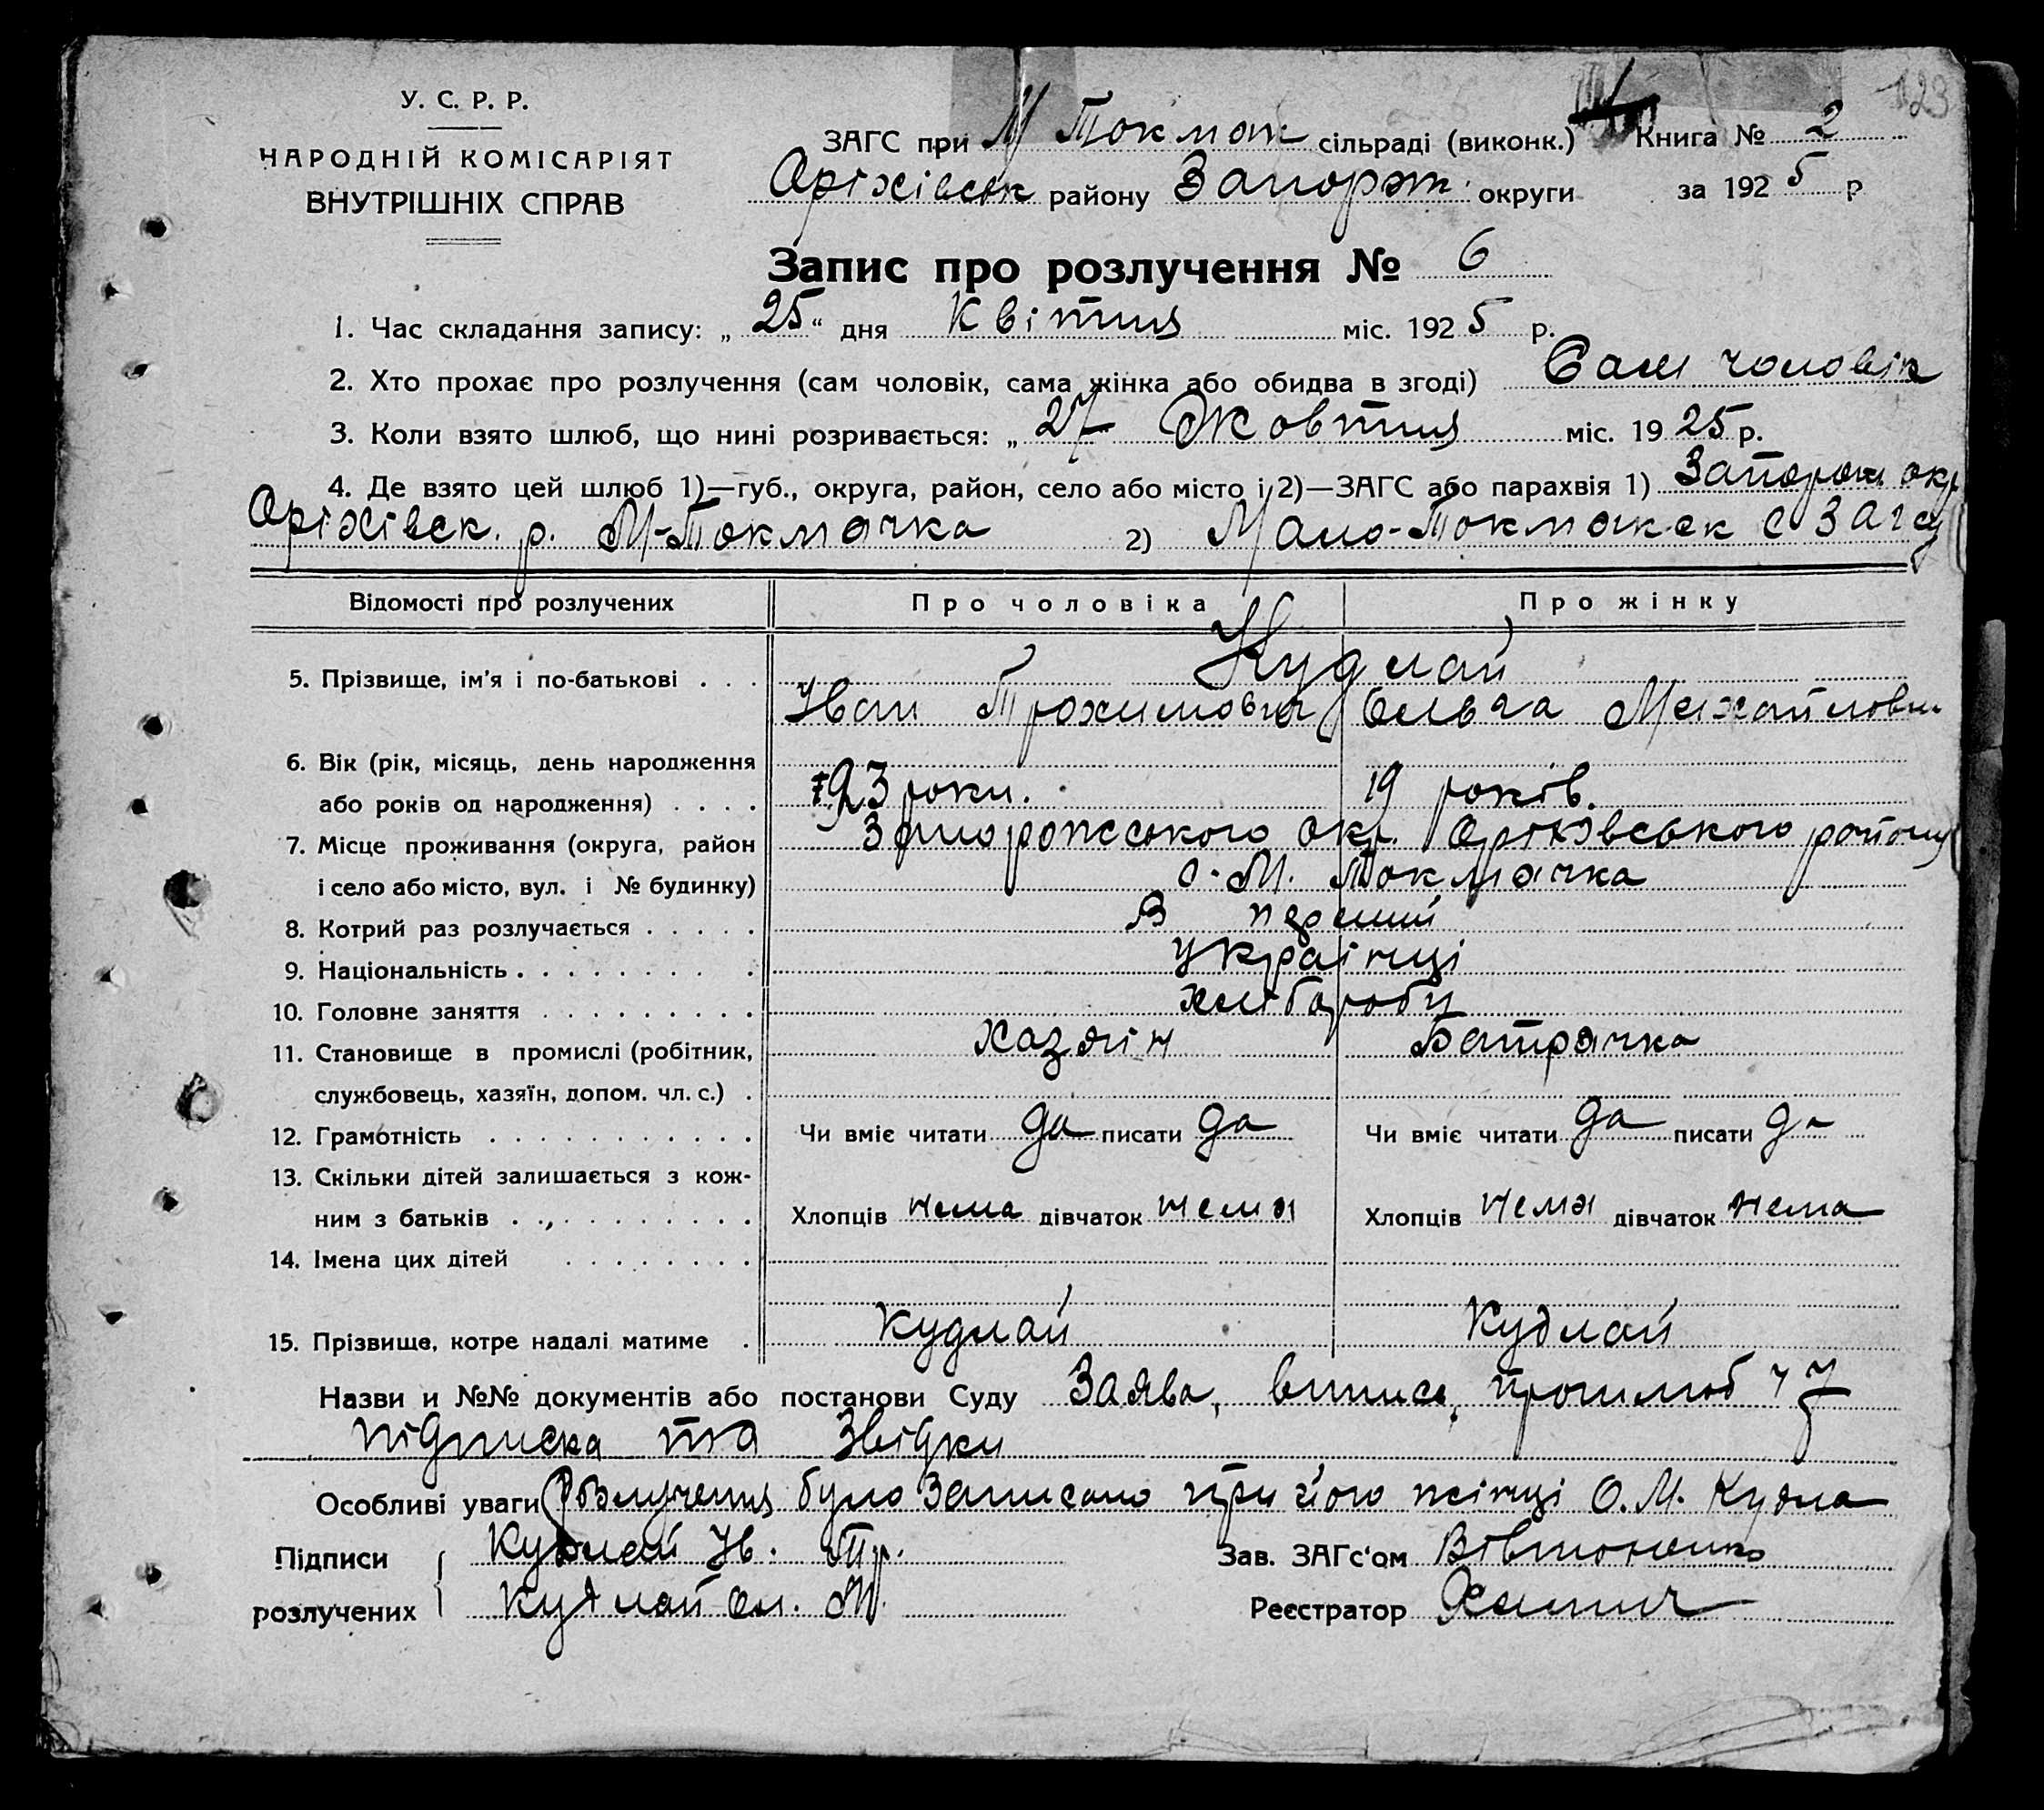 123
У. С. Р. Р.
НАРОДНІЙ КОМІСАРІЯТ
ВНУТРІШНІХ СПРАВ
ЗАГС при М Токмак сільраді (виконк.) Книга № 2
Оріхівськ району Запорож. округи за 1925 р
Запис про розлучення № 6
1. Час складання запису: „25“ дня Квітня міс. 1925 р.
2. Хто прохає про розлучення (сам чоловік, сама жінка або обидва в згоді) Сам чоловік
3. Коли взято шлюб, що нині розривається: „27 Жовтня міс. 1925 р.
4. Де взято цей шлюб 1)—губ., округа, район, село або місто і 2)—ЗАГС або парахвія 1) Запорож окр
Оріхівск. р. М-Токмачка 2) Мало-Токмакск С Загсу
Відомості про розлучених Про чоловіка Про жінку
5. Прізвище, ім'я і по-батькові . . . Кудлай
Іван Трохимович Ольга Михайловн
6. Вік (рік, місяць, день народження
або років од народження) . . . . 23 роки. 19 років.
7. Місце проживання (округа, район Запорожського окр. Оріхівського району
і село або місто, вул. і № будинку) с. М. Токмачка
8. Котрий раз розлучається . . . . . В перший
9. Національність . . . . . . . . . Українці
10. Головне заняття . . . . . . . . . хлібороби
11. Становище в промислі (робітник, Хазяін Батрачка
службовець, хазяїн, допом. чл. с.) .
12. Грамотність . . . . . . . . . . . Чи вміє читати да писати да Чи вміє читати да писати да
13. Скільки дітей залишається з кож-
ним з батьків . . . . . . . . . . Хлопців нема дівчаток нема Хлопців нема дівчаток нема
14. Імена цих дітей . . . . . . . .
15. Прізвище, котре надалі матиме . Кудлай Кудлай
Назви и №№ документів або постанови Суду Заява, випись, прошлюб ч 7
підписка та Звідки
Особливі уваги Розлучення було Записано при його жінці О. М. Кудла
Підписи Кудлай Ів. Тр. Зав. ЗАГс'ом
розлучених Кудлай Ол. М. Реєстратор